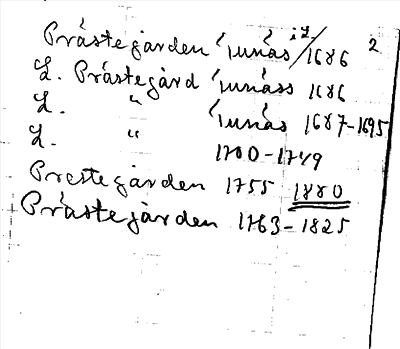 Prästegården Tunás i.2./1686 2
L. Prästegård Tunáss 1686
L. " Tunás 1687-1695
L. " 1700-1749
Prestegården 1755 1880
Prästegården 1763-1825